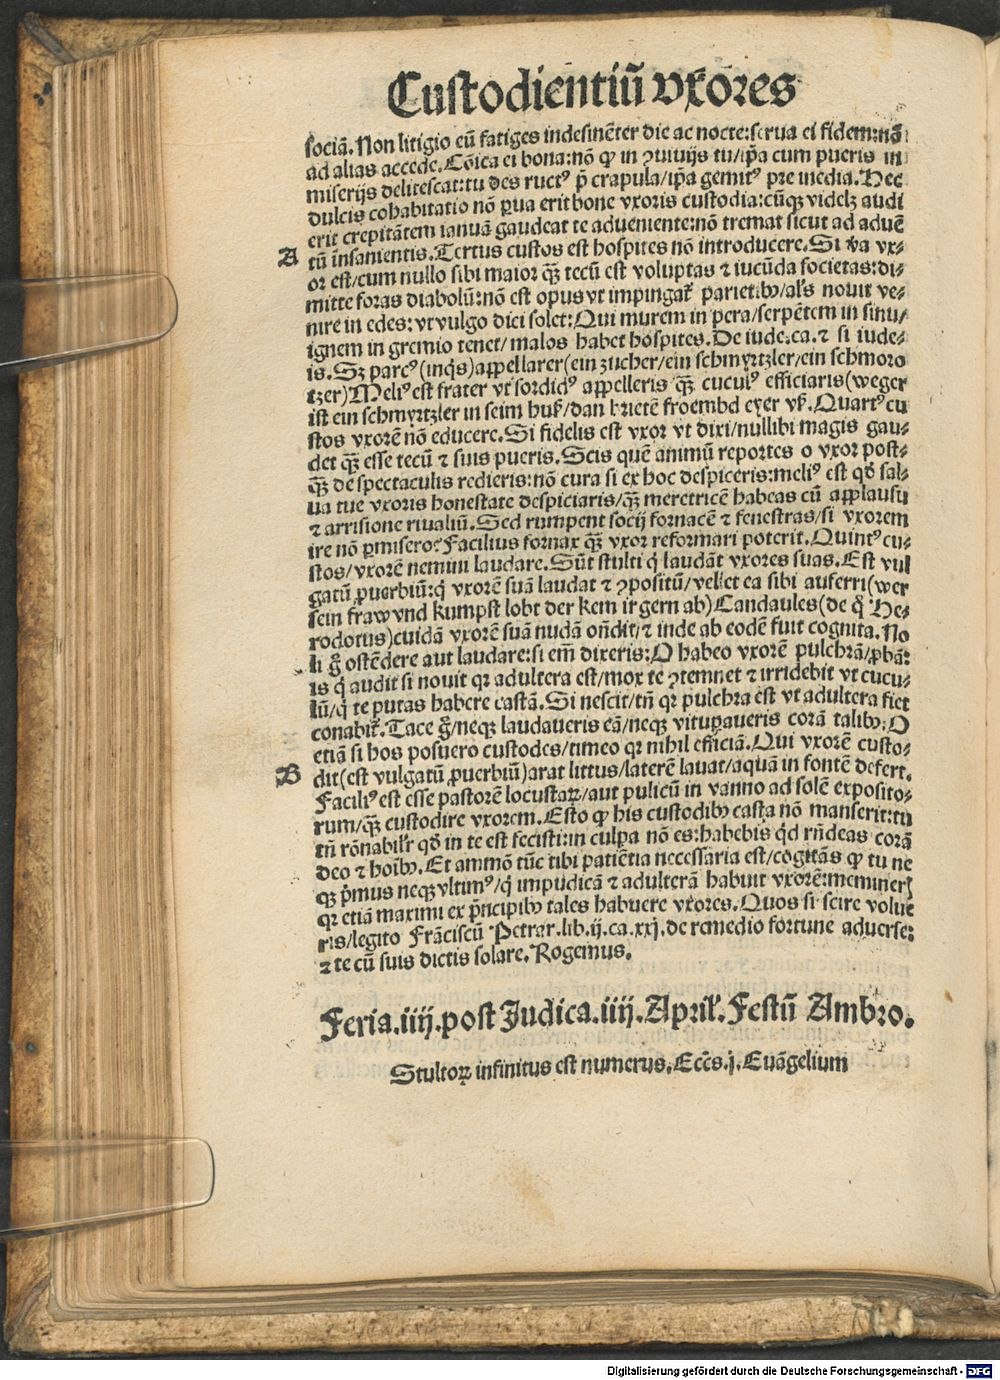 Custodientiū vxōres
sociā. Non litigio eū fatiges indesinēter die ac nocte:serua ei fidem:nō
ad alias accede. Cōica ei bona:nō ꝙ in ꝯuiuijs tu/ip̄a cum pueris in
miserijs delitescat:tu des ructꝰ p̄ crapula/ip̄a gemitꝰ pre inedia. Hec
dulcis cohabitatio nō ꝑua erit bone vxoris custodia:cūqꝫ videlꝫ audi
erit crepitātem ianuā gaudeat te adueniente:nō tremat sicut ad aduē
A
tū insanientis. Tertus custos est hospites nō introducere. Si v̄a vx-
or est/cum nullo sibi maior qꝫ̄ tecū est voluptas ⁊ iucūda societas:di-
mitte foras diabolū:nō est opus vt impingat̉ parietibꝰ/al̉s nouit ve-
nire in edes:vt vulgo dici solet:Qui murem in pera/serpētem in sinu/
ignem in gremio tenet/malos habet hospites. De iude.ca.⁊ si iude-
is. Sꝫ parcꝰ (inq̄s) appellarer(ein zucher/ein schmyrtzler/ein schmoro
tzer)Meliꝰ est frater vt sordidꝰ appelleris qꝫ̄ cuculꝰ efficiaris(weger
ist ein schmyrtzler in seim huß/dan brietē froembd eyer vß. Quartꝰ cu
stos vxorē nō educere. Si fidelis est vxor vt dixi/nullibi magis gau-
det qꝫ̄ esse tecū ⁊ suis pueris. Scis quē animū reportes o vxor post-
qꝫ̄ de spectaculis redieris:nō cura si ex hoc despiceris:meliꝰ est qd̓ sal-
ua tue vxoris honestate despiciaris/qꝫ̄ meretricē habeas cū applausu
⁊ arrisione riualiū. Sed rumpent socij fornacē ⁊ fenestras/si vxorem
ire nō ꝑmisero? Facilius fornax qꝫ̄ vxor reformari poterit. Quintꝰ cu-
stos/vxorē nemini laudare. Sūt stulti q̇ laudāt vxores suas. Est vul
gatū ꝓuerbiū:q̇ vxorē suā laudat ⁊ ꝯpositū/vellet ea sibi auferri(wer
sein fraw vnd kumpst lobt der kem ir gern ab)Candaules(de q̊ He-
rodotus)cuidā vxorē suā nudā on̄dit/⁊ inde ab eodē fuit cognita. No
li g̊ ostēdere aut laudare:si em̄ dixeris:O habeo vxorē pulchrā/ꝓbā:
is q̇ audit si nouit qꝛ adultera est/mox te ꝯtemnet ⁊ irridebit vt cucu-
lū/q̇ te putas habere castā. Si nescit/tn̄ qꝛ pulchra est vt adultera fiet
conabit̉. Tace g̊/neqꝫ laudaueris eā/neqꝫ vituꝑaueris corā talibꝰ:O
etiā si hos posuero custodes/timeo qꝛ nihil efficiā. Qui vxorē custo-
B
dit(est vulgatū ꝓuerbiū)arat littus/laterē lauat/aquā in fontē defert.
Faciliꝰ est esse pastorē locustaꝝ/aut pulicū in vanno ad solē exposito-
rum/qꝫ̄ custodire vxorem. Esto ꝙ his custodibꝰ casta nō manserit:tu
tn̄ rōnabil̉r qd̓ in te est fecisti:in culpa nō es:habebis qd̓ rn̄deas corā
deo ⁊ hoībꝰ. Et ammō tūc tibi patiētia necessaria est/cogitās ꝙ tu ne
qꝫ p̄mus neqꝫ vltimꝰ/q̇ impudicā ⁊ adulterā habuit vxorē:memineri̓
qꝛ etiā maximi ex p̄ncipibꝰ tales habuere vxōres. Quos si scire volue
ris/legito Frāciscū Petrar.lib.ij.ca.xxj.de remedio fortune aduerse:
⁊ te cū suis dictis solare. Rogemus.
Feria.iiij.post Judica.iiij.April̉.Festū Ambro.
Stultoꝝ infinitus est numerus.Eccs̄.j.Euāgelium
Digitalisierung gefördert durch die Deutsche Forschungsgemeinschaft - DFG